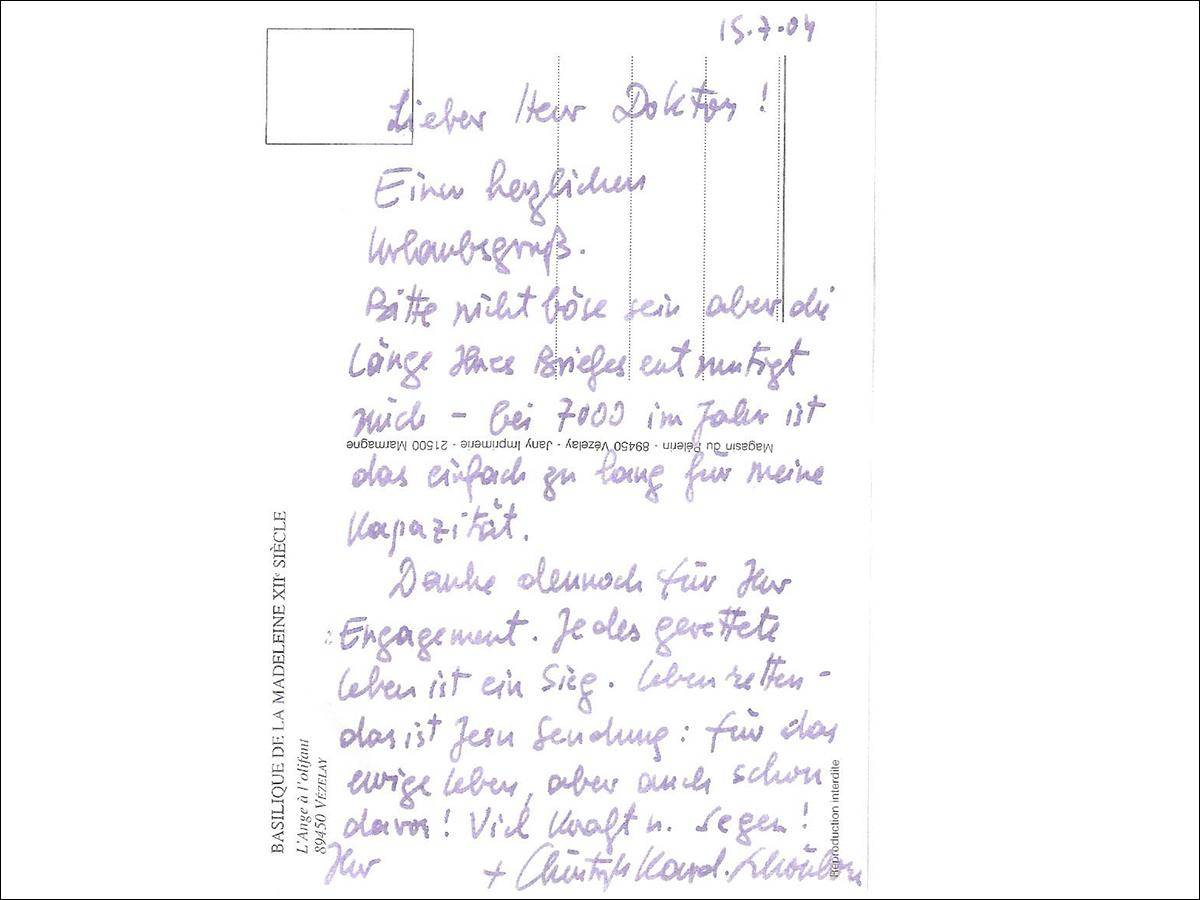 15.7.04
Lieber Herr Doktor!
Einen herzlichen
Urlaubsgruß.
Bitte nicht böse sein aber die
Länge Ihres Briefes entmutigt
mich - bei 7000 im Jahr ist
Magasin du Pélerin - 89450 Vézelay - Jany Imprimerie - 21500 Marmagne
das einfach zu lang für meine
Kapazität.
Danke dennoch für Ihr
Engagement. Jedes gerettete
Leben ist ein Sieg. Leben retten -
das ist Jesu Sendung: für das
ewige Leben, aber auch schon
davor! Viel Kraft u. Segen!
Ihr + Christoph Kard. Schönborn
BASILIQUE DE LA MADELEINE XIIe SIÈCLE
L'Ange à l'olifant
89450 VÉZELAY
Reproduction interdite